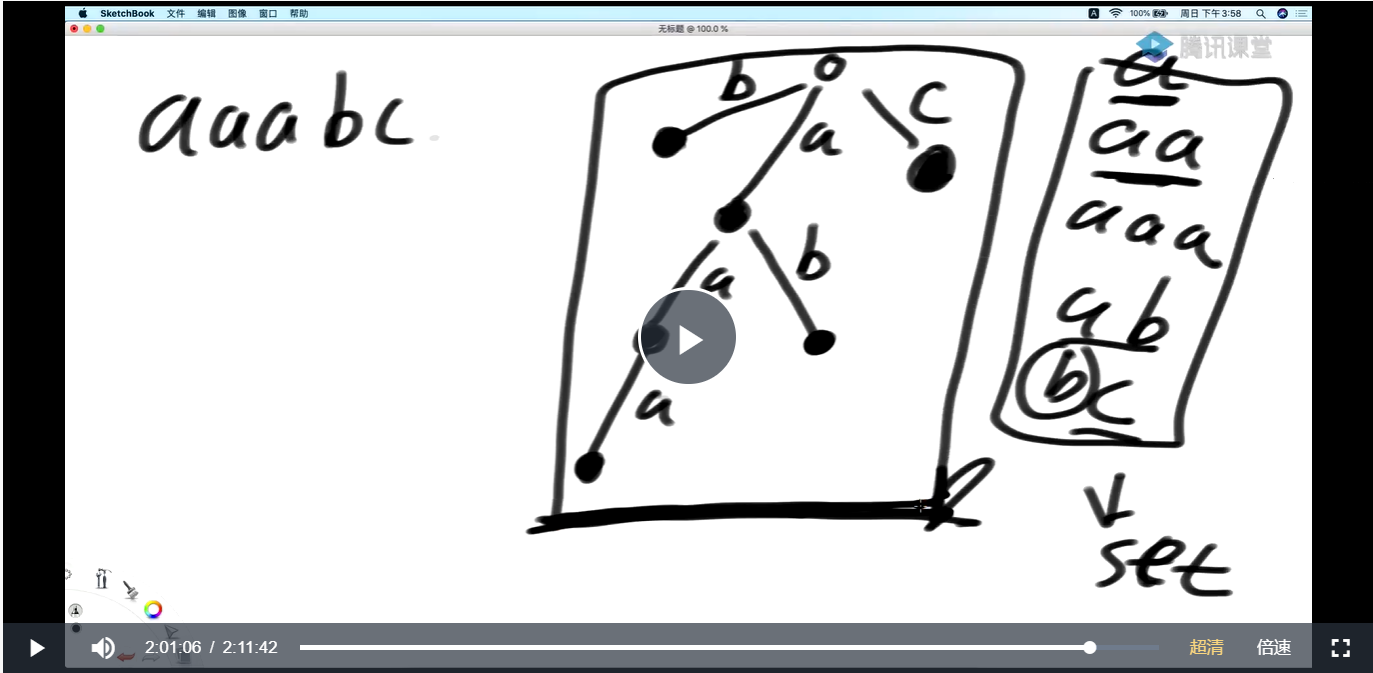 SketchBook 文件 编辑 图像 窗口 帮助 A 100% 周日 下午3:58
无标题 @ 100.0 %
腾讯课堂
aaabc
b
o
a
c
a
b
a
a
aa
aaa
ab
bc
set
2:01:06 / 2:11:42 超清 倍速